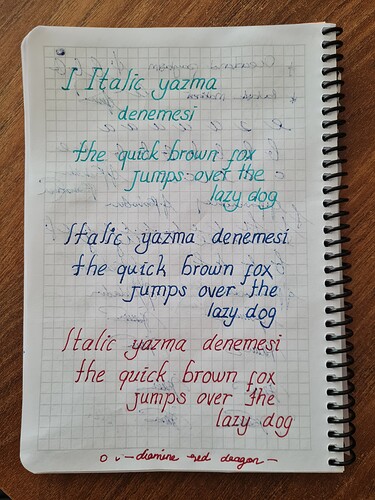 I Italic yazma
denemesi
the quick brown fox
jumps over the
lazy dog
Italic yazma denemesi
the quick brown fox
jumps over the
lazy dog
Italic yazma denemesi
the quick brown fox
jumps over the
lazy dog
diamine red dragon